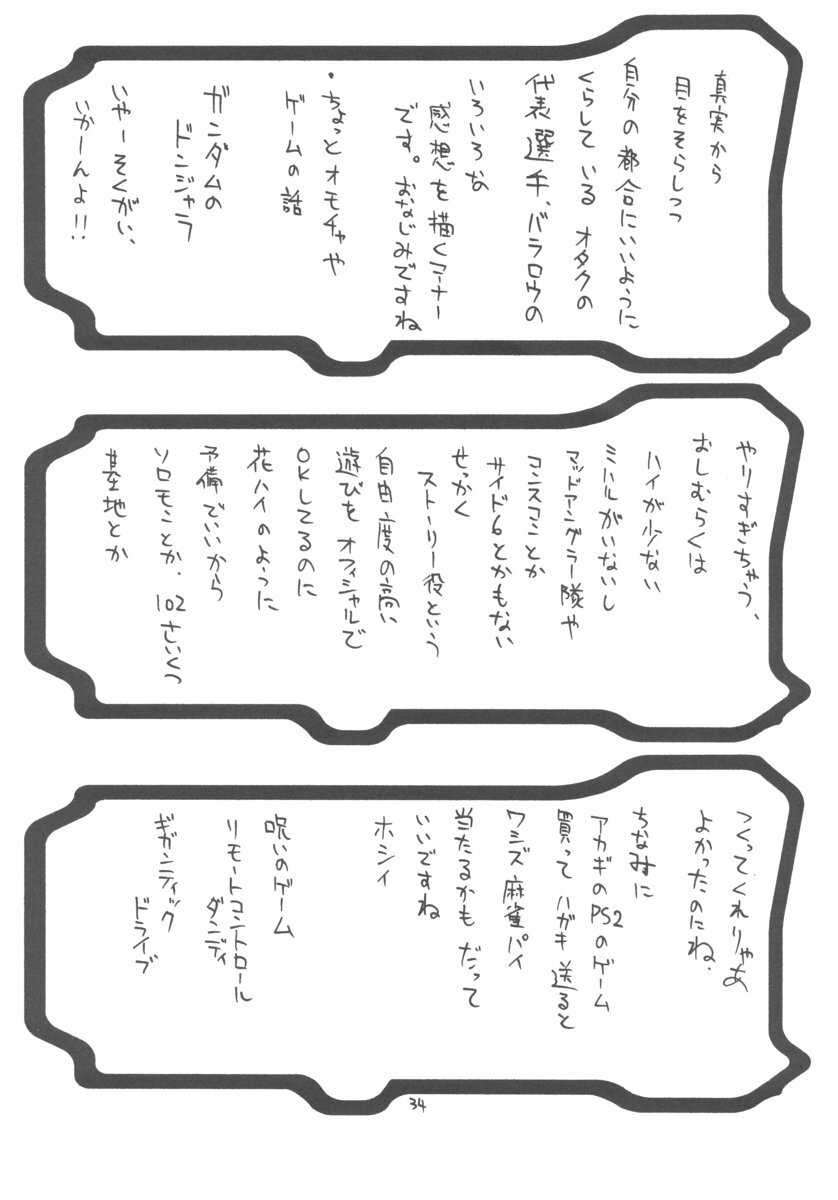 真実から
目をそらしつつ
自分の都合にいいように
くらしている オタクの
代表選手、バラロウの
いろいろな
感想を描くコーナー
です。おなじみですね
・ちょっとオモチャや
ゲームの話
ガンダムの
ドンジャラ
いやーそくがい、
いかーんよ!!
やりすぎちゃう、
おしむらくは
ハイが少ない
ミハルがいないし
マッドアングラー隊や
コンスコンとか
サイド6とかもない
せっかく
ストーリー役という
自由度の高い
遊びを オフィシャルで
OKしてるのに
花ハイのように
予備でいいから
ソロモンとか、102さいくつ
基地とか
つくってくれりゃあ
よかったのにね.
ちなみに
アカギのPS2のゲーム
買って ハガキ 送ると
ワシズ 麻雀パイ
当たるかも だって
いいですね
ホシイ
呪いのゲーム
リモートコントロール
ダンディ
ギガンティック
ドライブ
34